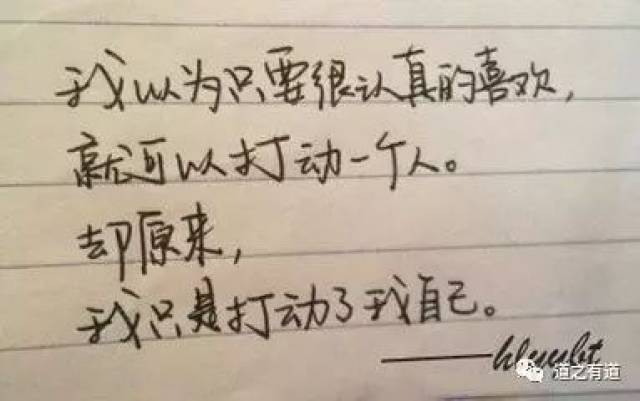 我以为只要很认真的喜欢,
就可以打动一个人。
却原来,
我只是打动了我自己。
道之有道